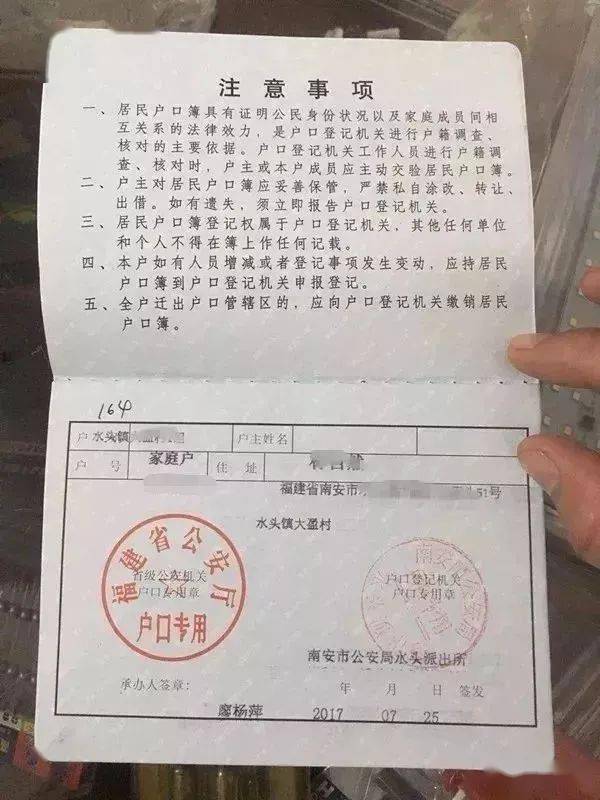 注意事项
一、居民户口簿具有证明公民身份状况以及家庭成员间相
互关系的法律效力，是户口登记机关进行户籍调查、
核对的主要依据。户口登记机关工作人员进行户籍调
查、核对时，户主或本户成员应主动交验居民户口簿。
二、户主对居民户口簿应妥善保管，严禁私自涂改、转让、
出借。如有遗失，须立即报告户口登记机关。
三、居民户口簿登记权属于户口登记机关，其他任何单位
和个人不得在簿上作任何记载。
四、本户如有人员增减或者登记事项发生变动，应持居民
户口簿到户口登记机关申报登记。
五、全户迁出户口管辖区的，应向户口登记机关缴销居民
户口簿。
164
户 水头镇 户主姓名
户号 家庭户 住址
福建省南安市 51号
水头镇大盈村
福建省公安厅
省级公安机关
户口专用章
户口专用
南安市公安局
户口登记机关
户口专用章
南安市公安局水头派出所
承办人签章： 年 月 日 签发
廖杨萍 2017 07 25